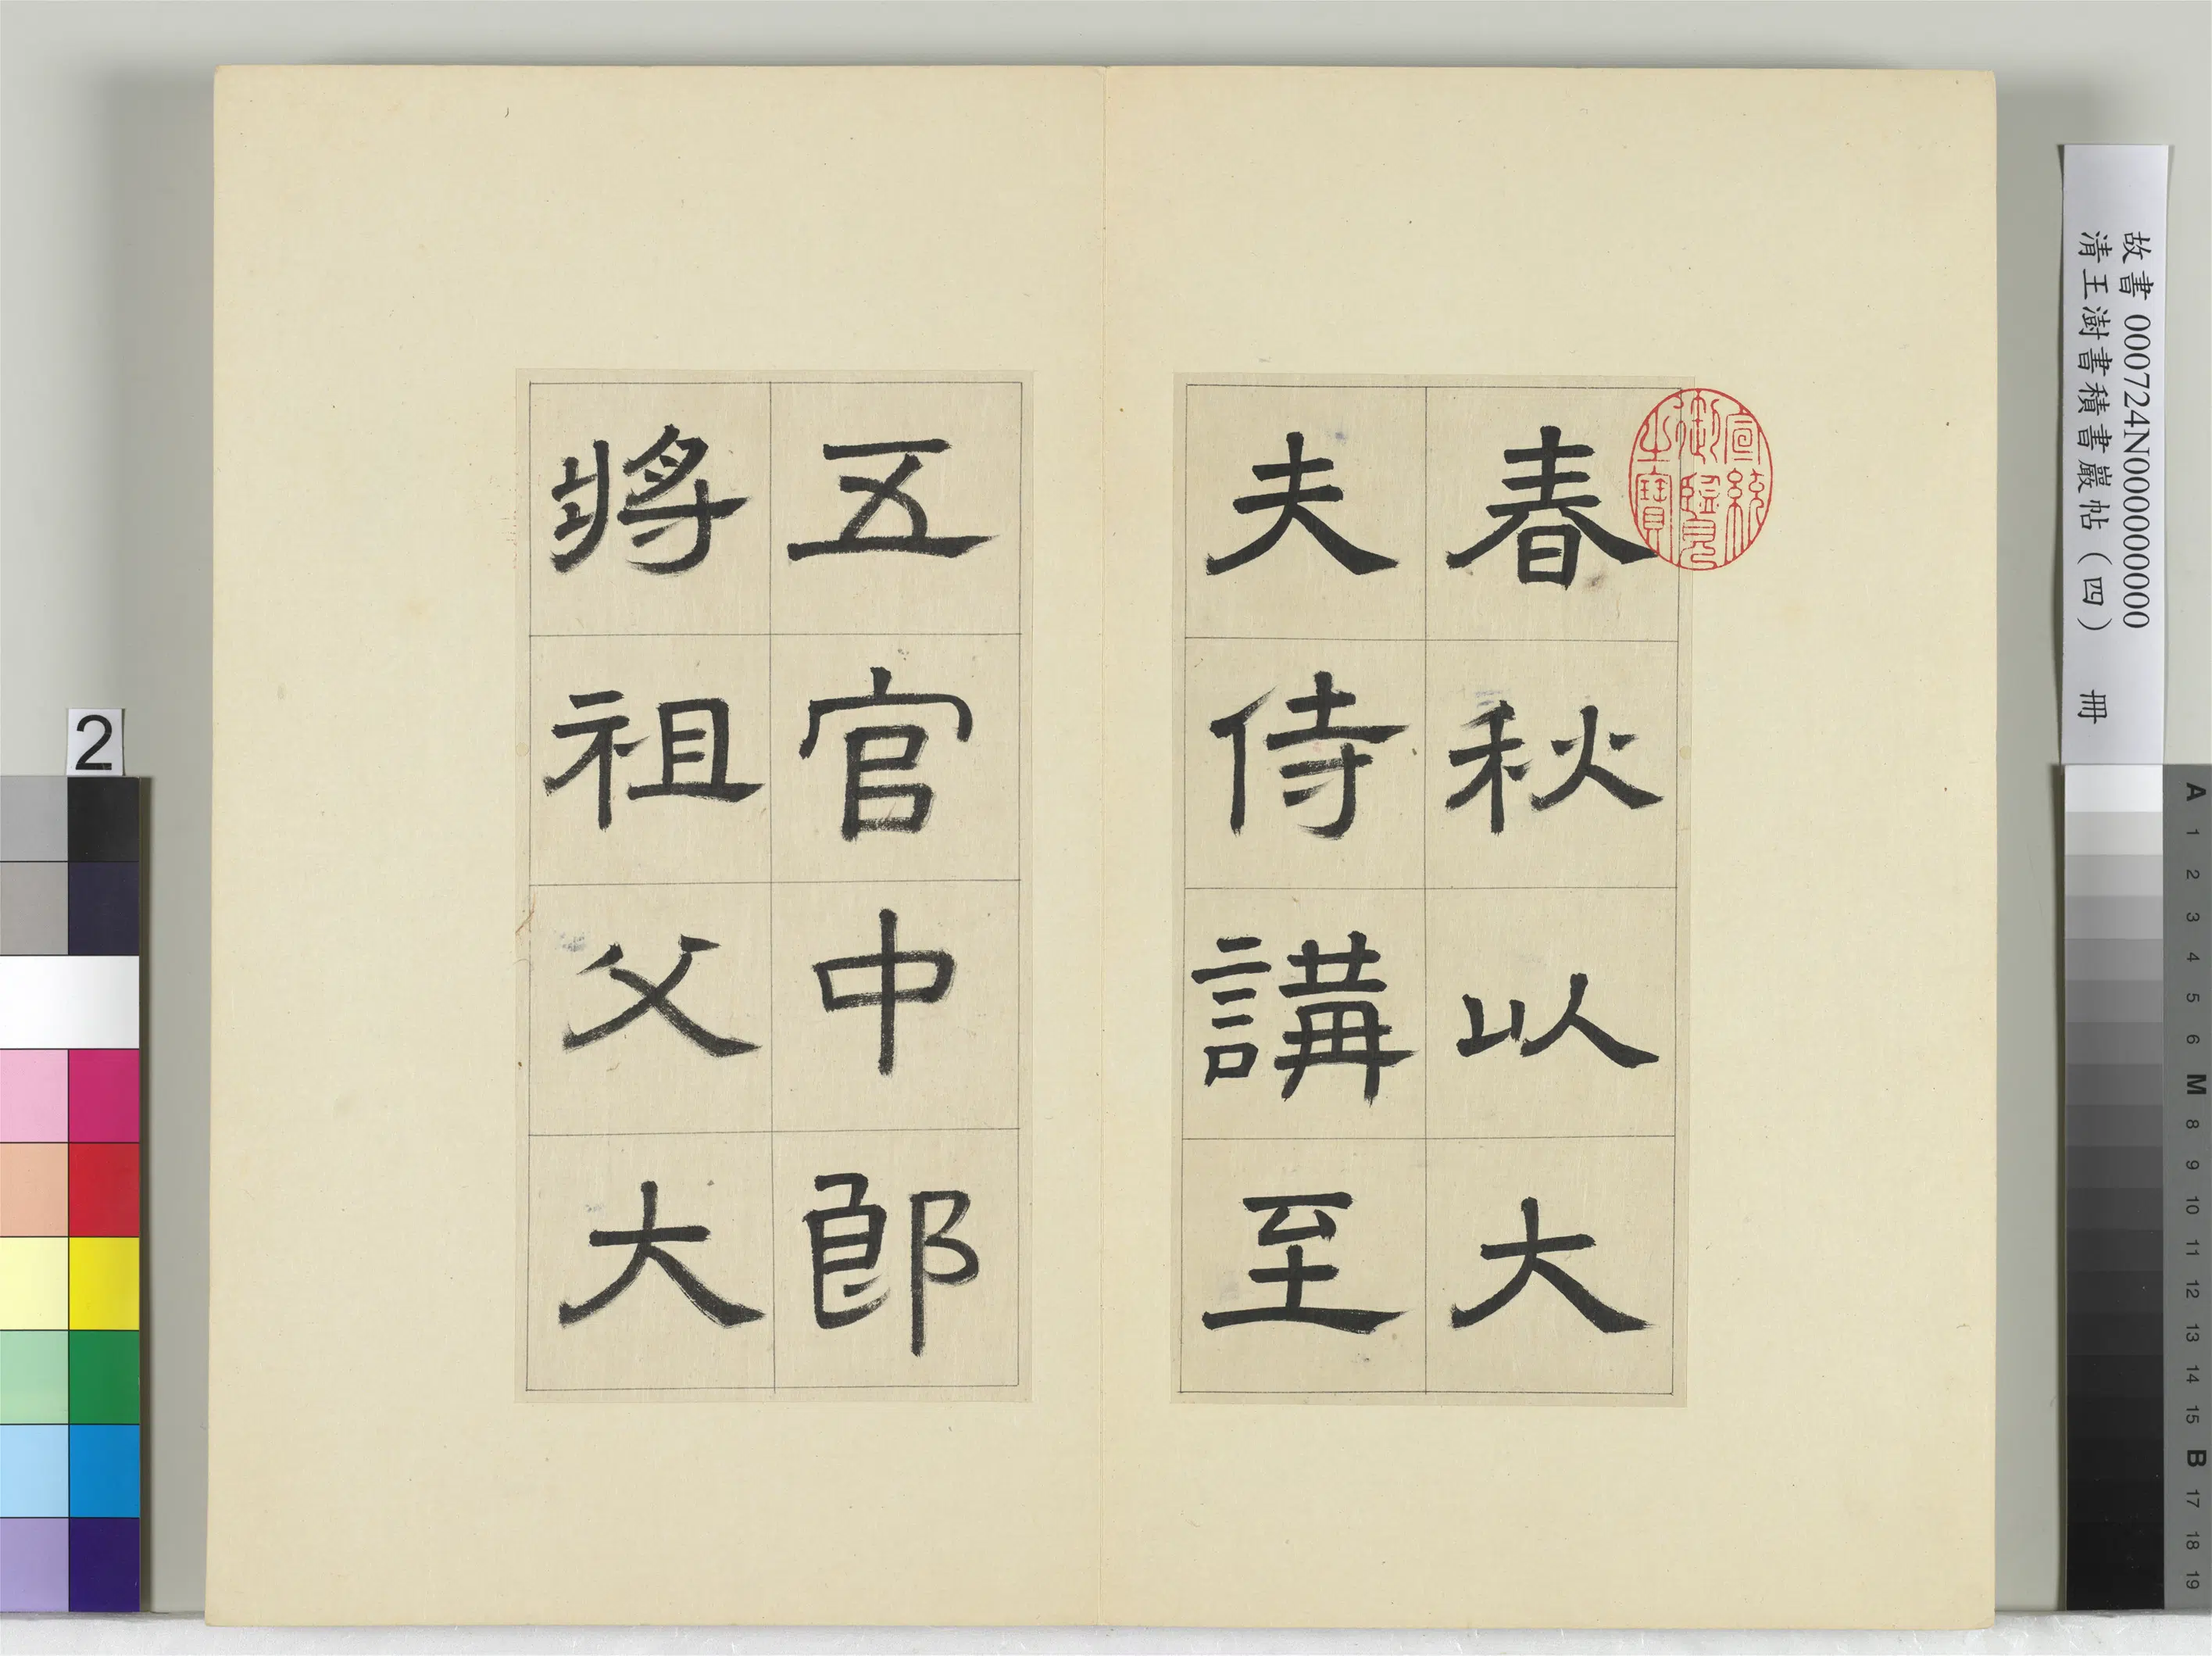 春秋以大
夫侍講至
五官中郎
將祖父大
宣統御覽之寶
故書 000724N000000000
清王澍書積書巖帖（四） 冊
2
A 1 2 3 4 5 6 M 8 9 10 11 12 13 14 15 B 17 18 19